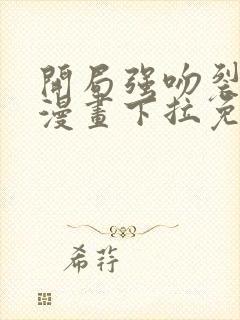 開局強吻裂
漫畫下拉免
希荇